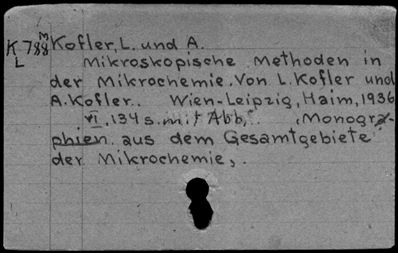 K 788 m Kofler, L. und A.
L Mikroskopische Methoden in
der Mikrochemie. Von L. Kofler und
A. Kofler. Wien-Leipzig, Haim, 1936
VI, 134 s. mit Abb. (Monogra-
phien aus dem Gesamtgebiete
der Mikrochemie,.